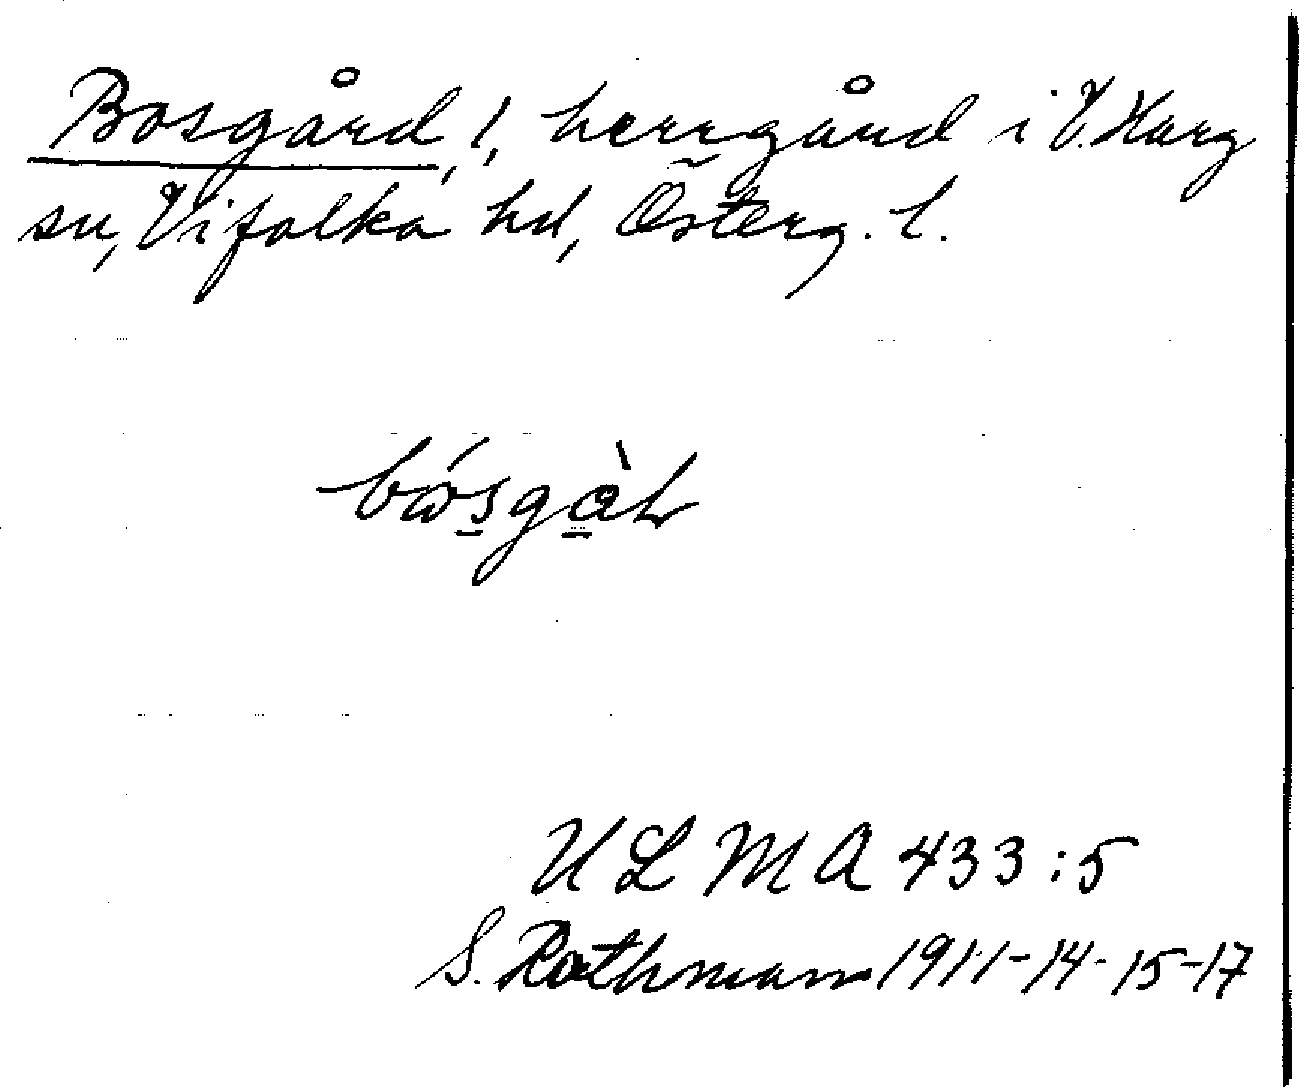 Bosgård, !, herrgård i V. Harg
sn, Vifolka hd, Österg. l.
ULMA 433:5
S. Rothman 1911-14-15-17